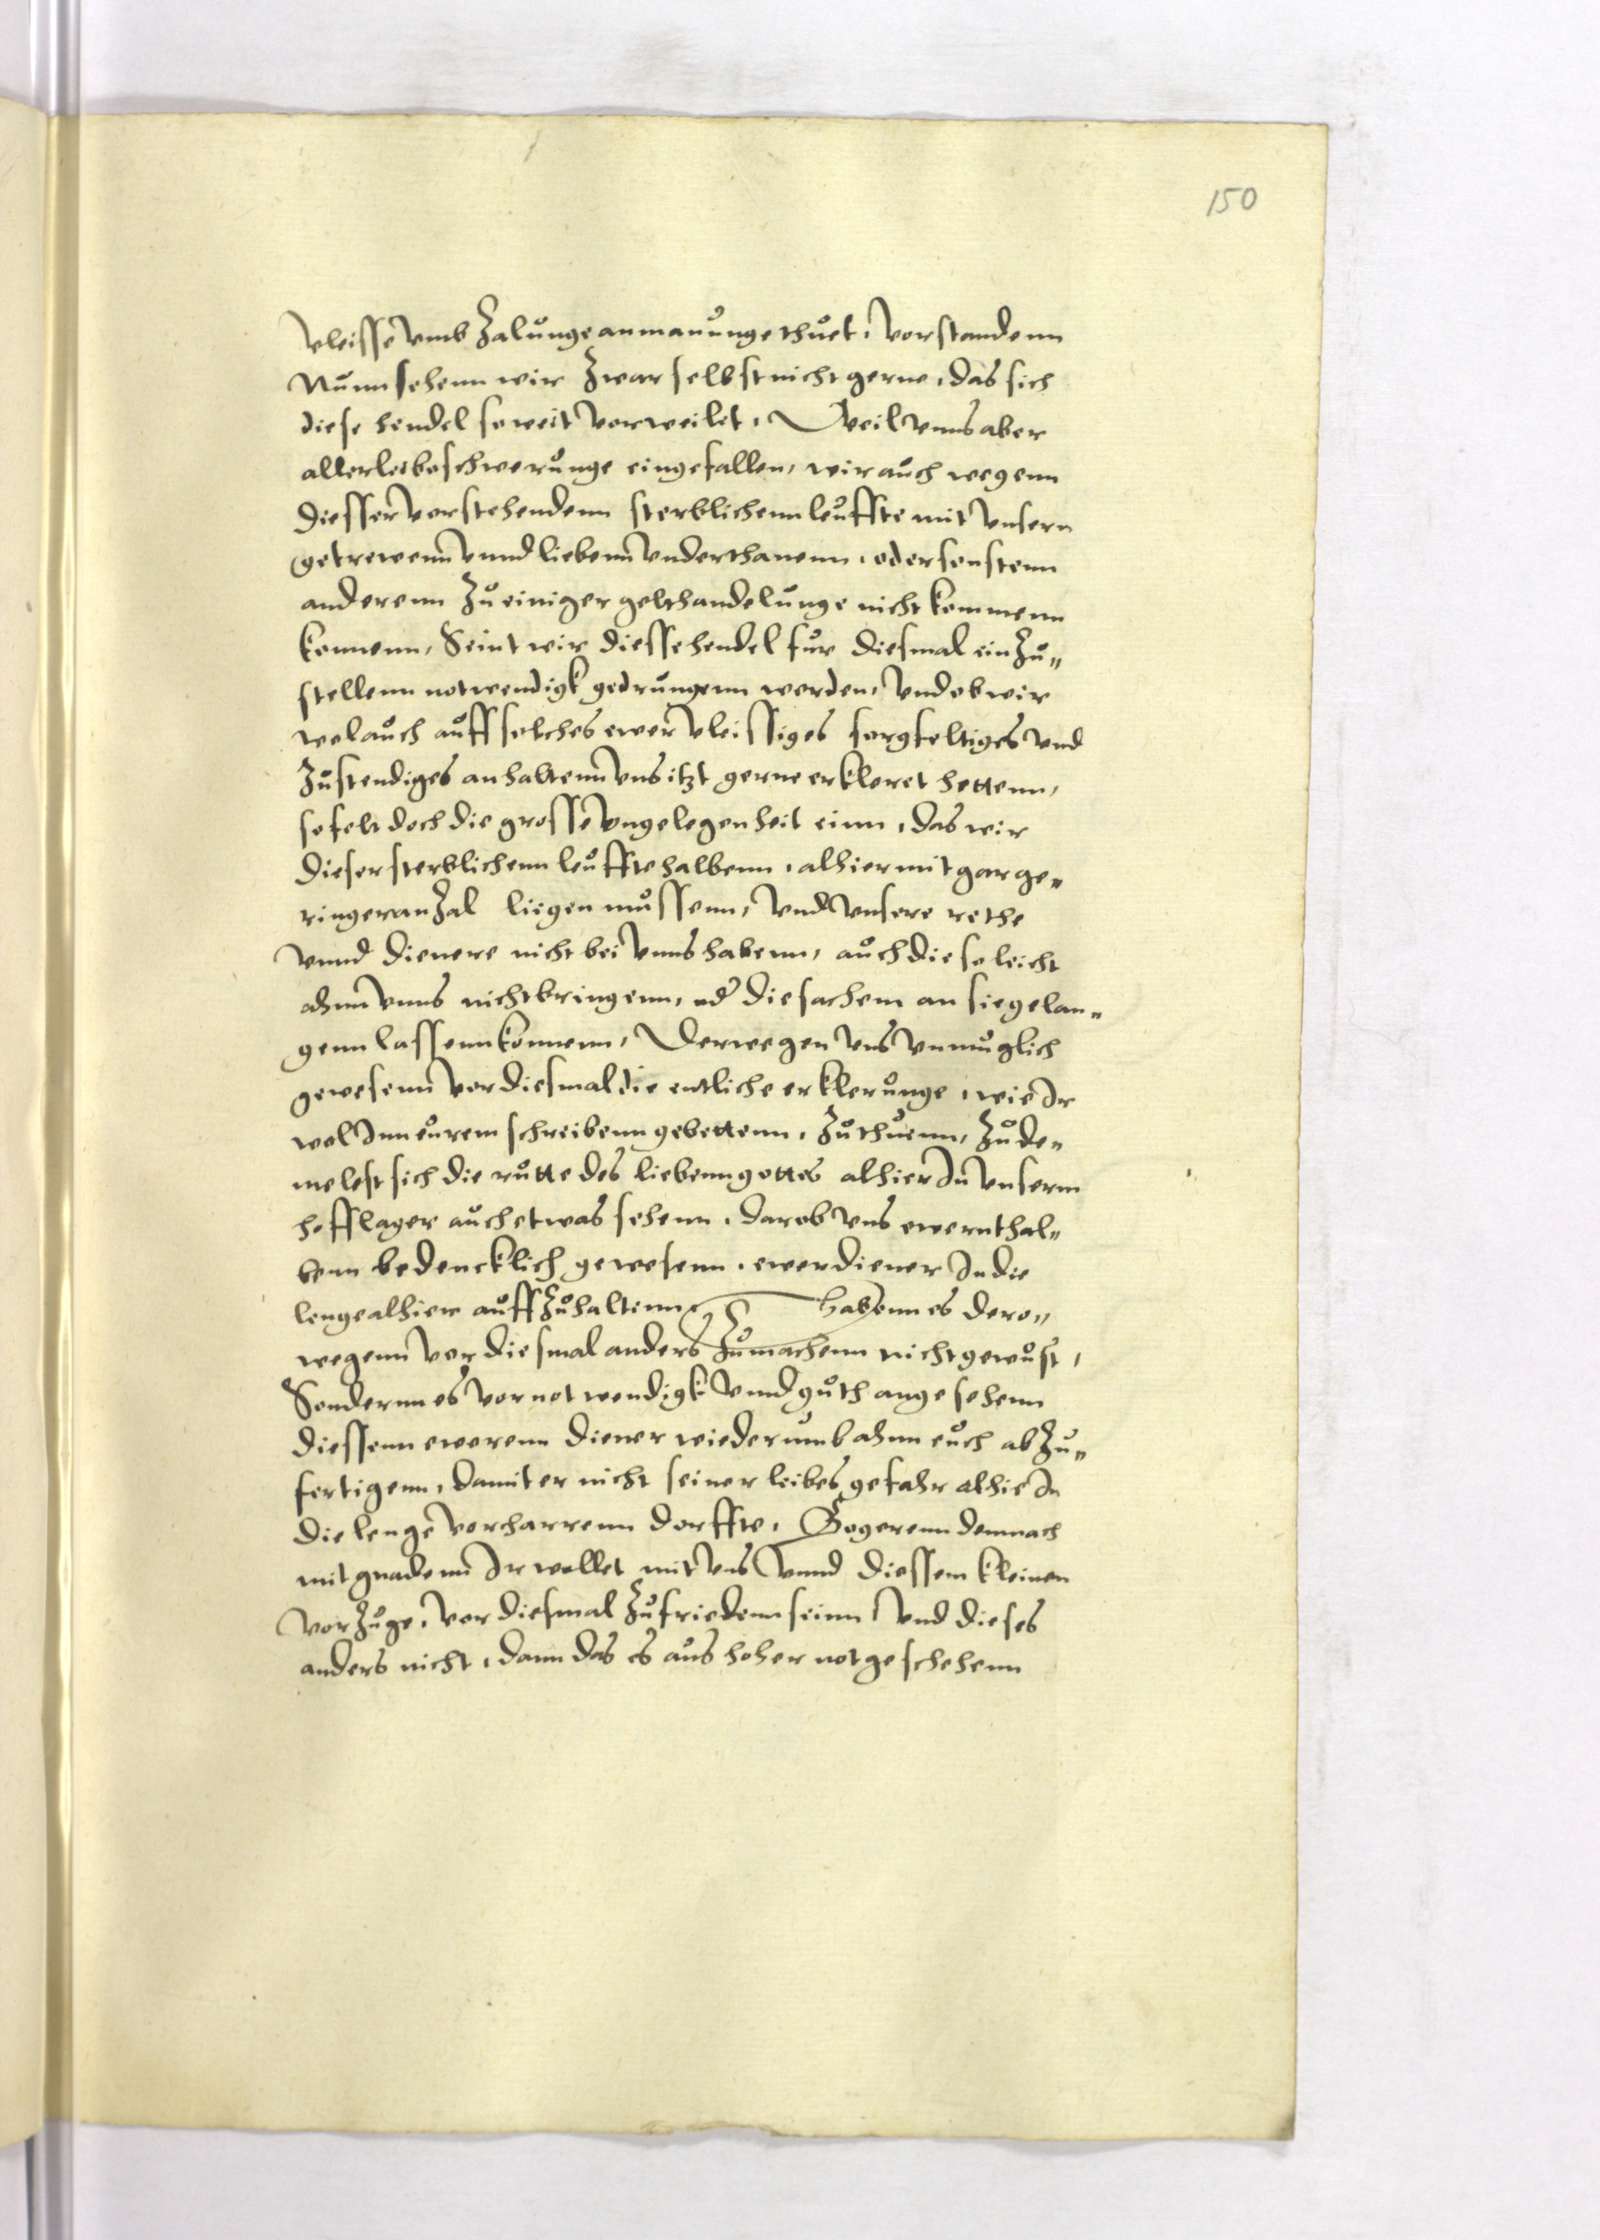 150
vleisse vmb Zalunge anmanunge thuet, vorstandenn
Nunn sehenn wir Zwar selbst nicht gerne, das sich
diese hendel so weit vorweilet, Weil vnns aber
allerlei beschwerunge eingefallen, wir auch wegenn
diesser vorstehendenn sterblichenn leuffte mit vnsern
getrewenn vnnd liebenn vnderthanenn, oder sonstenn
anderenn Zu einiger gelthandelunge nicht kommenn
konnenn, Seint wir diesse hendel fur diesmal ein Zu„
stellenn notwendigk gedrungenn worden, vnd ob wir
wol auch auff solches ewer vleissiges sorgfeltiges vnd
Zustendiges anhaltenn vns itzt gerne erkleret hettenn,
so felt doch die grosse vngelegenheit einn, das wir
dieser sterblichenn leuffte halbenn, alhier mit gar ge„
ringer anZal liegen mussenn, vnd vnsere rethe
vnnd dienere nicht bei vnns habenn, auch die so leicht
ahnn vnns nicht bringenn, od die sachenn an sie gelan„
genn lassenn konnenn, Derwegen vns vnmuglich
gewesenn vor diesmal die entliche erklerunge, wie Ir
wol Inn eurem schreibenn gebettenn, Zu thuenn, Zu de„
me lest sich die rutte des liebenn gottes alhier In vnserm
hofflager auch etwas sehenn, darob vns ewernthal„
benn bedencklich gewesenn, ewer diener In die
lenge alhier auff Zuhaltenn, habenn es dero„
wegenn vor diesmal anders Zu machenn nicht gewust,
Sondernn es vor notwendigk vnnd guth angesehenn
diessenn ewerenn diener wiederumb ahnn euch ab Zu„
fertigenn, damit er nicht seiner leibes gefahr alhie In
die lenge vorharrenn dorffte, Begerenn demnach
mit gnadenn Ir wollet mit vns vnnd diessem kleinen
vorZuge, vor diesmal Zufriedenn seinn, vnd dieses
anders nicht, dann das es aus hoher not geschehenn